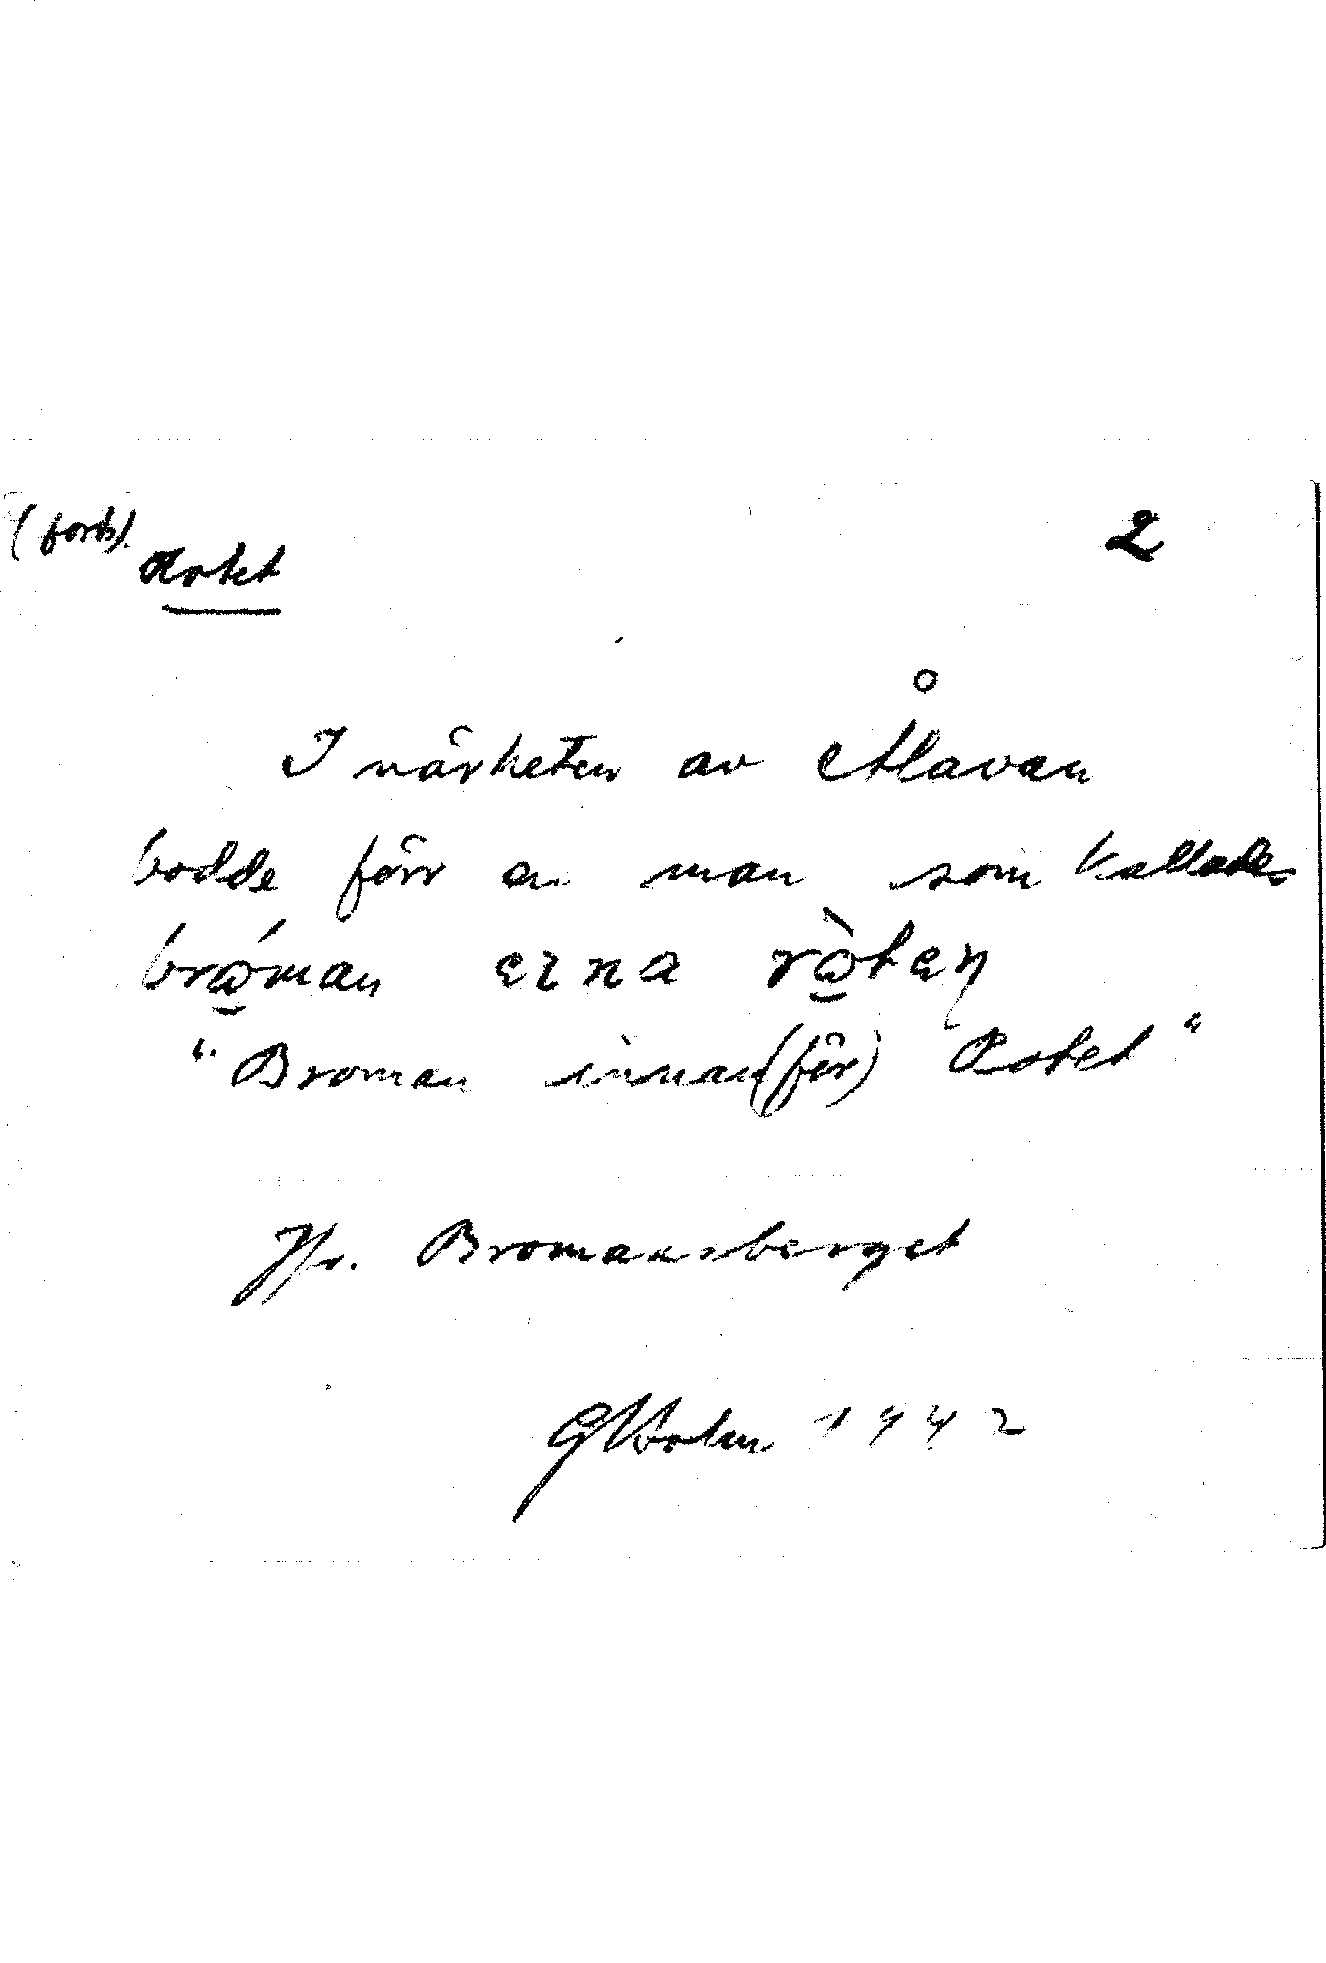 (forts). 2
Rotet
I närheten av Ålavan
bodde förr en man som kallades
"Broman innan(för) Rotet"
Jfr. Bromansberget
GHolm 1942